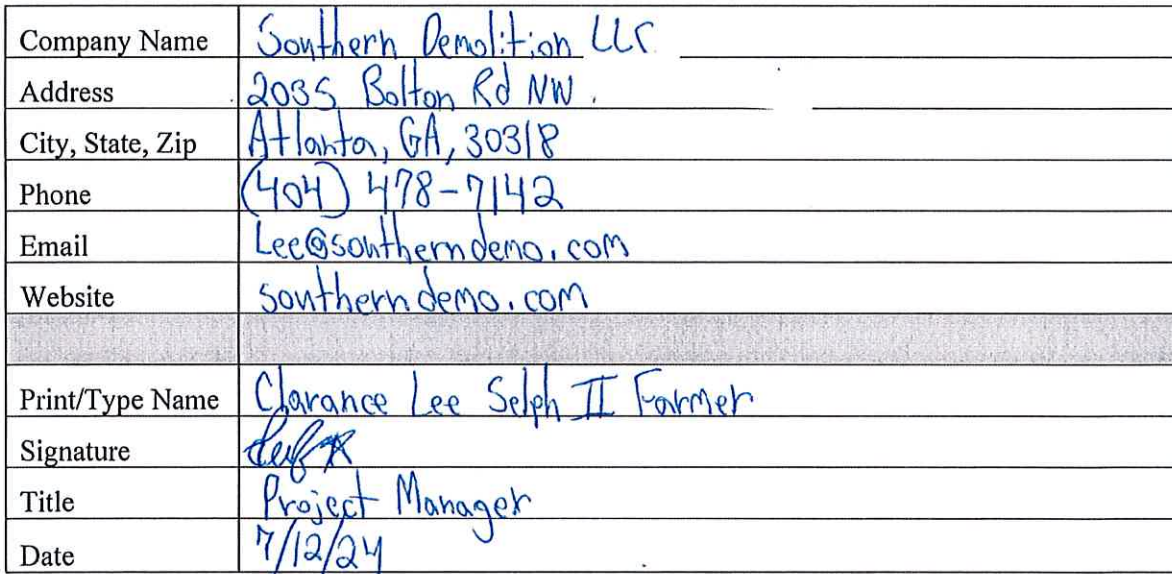 Company Name Southern Demolition LLC
Address 2035 Bolton Rd NW.
City, State, Zip Atlanta, GA, 30318
Phone (404) 478-7142
Email Lee@southerndemo.com
Website southerndemo.com
Print/Type Name Clarance Lee Selph II Farmer
Signature
Title Project Manager
Date 7/12/24